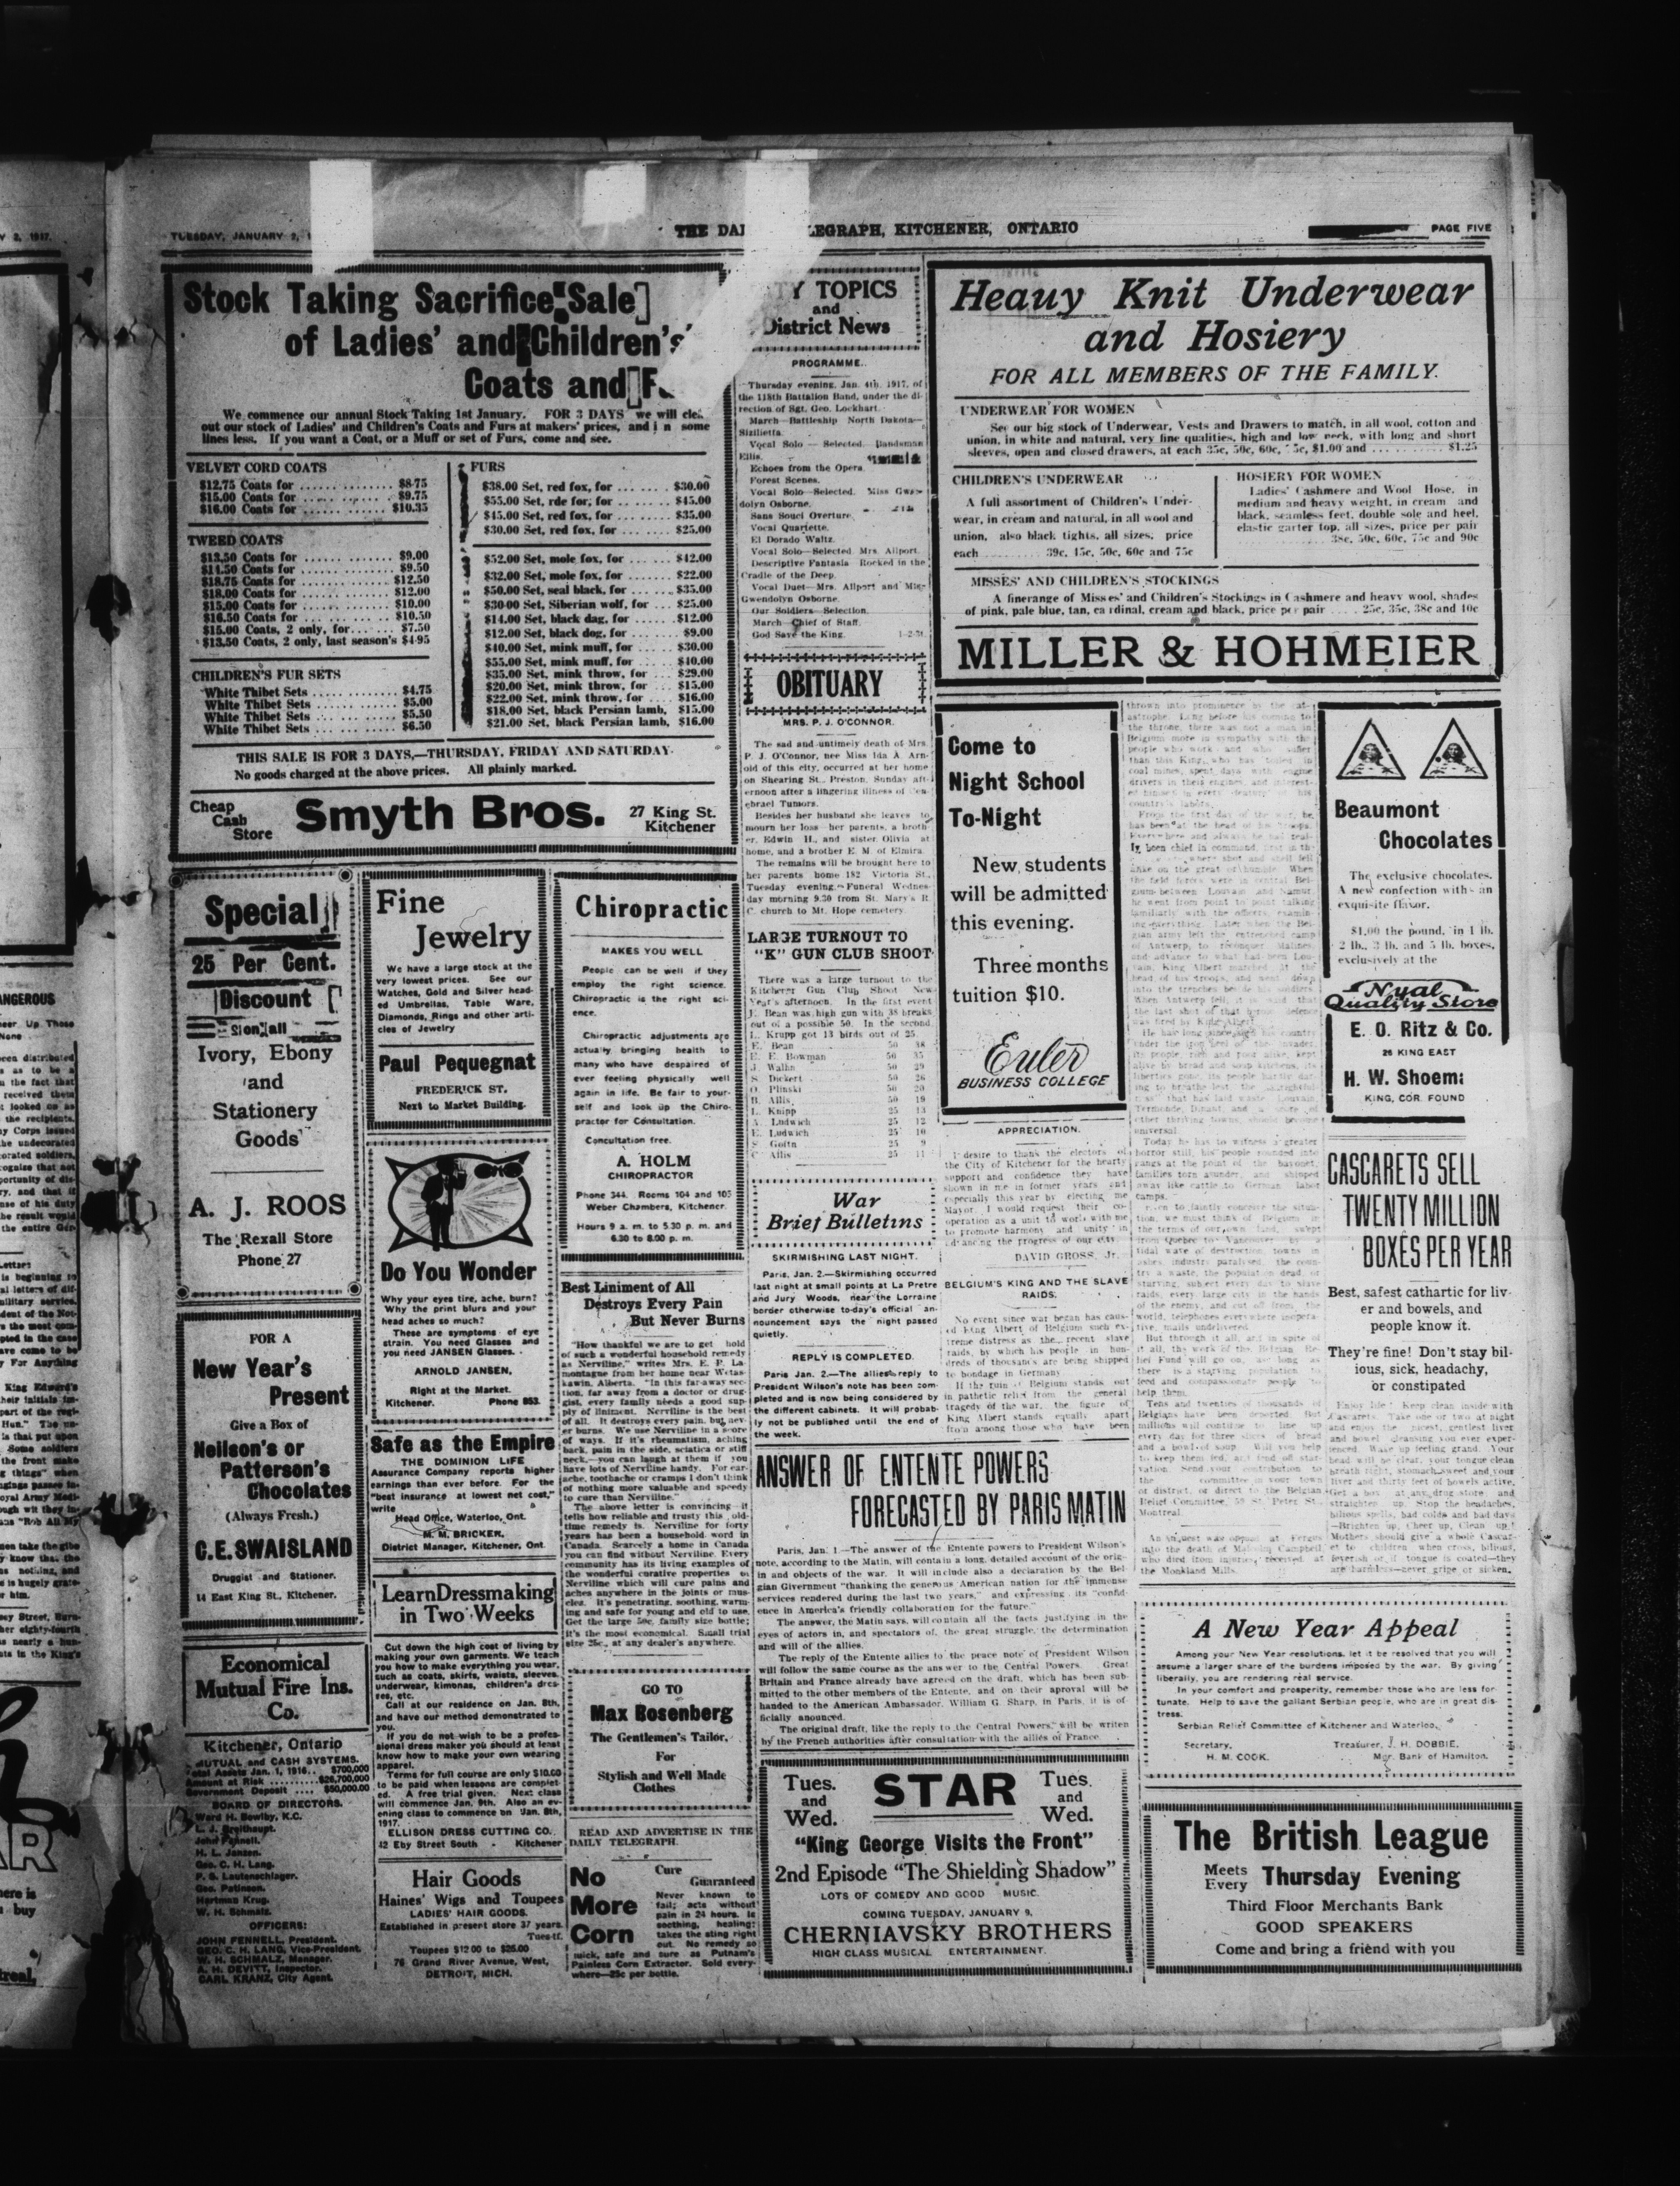 TUESDAY, JANUARY 2,
THE DAI
EGRAPH, KITCHENER, ONTARIO
PAGE FIVE
Stock Taking Sacrifice Sale
of Ladies' and Children's
Coats and
We commence our annual Stock Taking 1st January. FOR 3 DAYS we will
out our stock of Ladies' and Children's Coats and Furs at makers' prices, and in some
lines less. If you want a Coat, or a Muff or set of Furs, come and see.
VELVET CORD COATS
$12.75 Coats for $8.75
$15.00 Coats for $9.75
$16.00 Coats for $10.35
TWEED COATS
$13.50 Coats for $9.00
$14.50 Coats for $9.50
$18.75 Coats for $12.50
$18.00 Coats for $12.00
$15.00 Coats for $10.00
$16.50 Coats for $10.50
$15.00 Coats, 2 only, for $7.50
$13.50 Coats, 2 only, last season's $4.95
CHILDREN'S FUR SETS
White Thibet Sets $4.75
White Thibet Sets $5.00
White Thibet Sets $5.50
White Thibet Sets $6.50
FURS
$38.00 Set, red fox, for $30.00
$55.00 Set, rde for, for $45.00
$45.00 Set, red fox, for $35.00
$30.00 Set, red fox, for $25.00
$52.00 Set, mole fox, for $42.00
$32.00 Set, mole fox, for $22.00
$50.00 Set, seal black, for $35.00
$30.00 Set, Siberian wolf, for $25.00
$14.00 Set, black dag, for $12.00
$12.00 Set, black dog, for $9.00
$40.00 Set, mink muff, for $30.00
$55.00 Set, mink muff, for $40.00
$35.00 Set, mink throw, for $29.00
$20.00 Set, mink throw, for $15.00
$22.00 Set, mink throw, for $16.00
$18.00 Set, black Persian lamb, $15.00
$21.00 Set, black Persian lamb, $16.00
THIS SALE IS FOR 3 DAYS,—THURSDAY, FRIDAY AND SATURDAY.
No goods charged at the above prices. All plainly marked.
Cheap
Cash
Store
Smyth Bros.
27 King St.
Kitchener
Special
25 Per Cent.
Discount
on all
Ivory, Ebony
and
Stationery
Goods
A. J. ROOS
The Rexall Store
Phone 27
FOR A
New Year's
Present
Give a Box of
Neilson's or
Patterson's
Chocolates
(Always Fresh.)
C.E. SWAISLAND
Druggist and Stationer.
14 East King St., Kitchener.
Economical
Mutual Fire Ins.
Co.
Kitchener, Ontario
MUTUAL and CASH SYSTEMS.
Total Assets Jan. 1, 1916.. $700,000
Amount at Risk $26,700,000
Government Deposit $50,000.00
BOARD OF DIRECTORS.
Ward H. Bowlby, K.C.
L. J. Breithaupt.
John Fennell.
H. L. Janzen.
Geo. C. H. Lang.
P. S. Lautenschlager.
Geo. Pattinson.
Hartman Krug.
W. H. Schmalz.
OFFICERS:
JOHN FENNELL, President.
GEO. C. H. LANG, Vice-President.
W. H. SCHMALZ, Manager.
A. H. DEVITT, Inspector.
CARL KRANZ, City Agent.
Fine
Jewelry
We have a large stock at the
very lowest prices. See our
Watches, Gold and Silver head-
ed Umbrellas, Table Ware,
Diamonds, Rings and other arti-
cles of Jewelry
Paul Pequegnat
FREDERICK ST.
Next to Market Building.
Do You Wonder
Why your eyes tire, ache, burn?
Why the print blurs and your
head aches so much?
These are symptoms of eye
strain. You need Glasses and
you need JANSEN Glasses.
ARNOLD JANSEN,
Right at the Market.
Kitchener. Phone 853.
Safe as the Empire
THE DOMINION LIFE
Assurance Company reports higher
earnings than ever before. For the
"best insurance at lowest net cost,"
write
Head Office, Waterloo, Ont.
M. M. BRICKER,
District Manager, Kitchener, Ont.
Learn Dressmaking
in Two Weeks
Cut down the high cost of living by
making your own garments. We teach
you how to make everything you wear,
such as coats, skirts, waists, sleeves,
underwear, kimonas, children's dres-
ses, etc.
Call at our residence on Jan. 8th,
and have our method demonstrated to
you.
If you do not wish to be a profes-
sional dress maker you should at least
know how to make your own wearing
apparel.
Terms for full course are only $10.00
to be paid when lessons are complet-
ed. A free trial given. Next class
will commence Jan. 9th. Also an ev-
ening class to commence on Jan. 8th,
1917.
ELLISON DRESS CUTTING CO.
42 Eby Street South - Kitchener
Hair Goods
Haines' Wigs and Toupees
LADIES' HAIR GOODS.
Established in present store 37 years.
Tues tf.
Toupees $12.00 to $25.00
76 Grand River Avenue, West,
DETROIT, MICH.
Chiropractic
MAKES YOU WELL
People can be well if they
employ the right science.
Chiropractic is the right sci-
ence.
Chiropractic adjustments are
actually bringing health to
many who have despaired of
ever feeling physically well
again in life. Be fair to your-
self and look up the Chiro-
practor for Consultation.
Concultation free.
A. HOLM
CHIROPRACTOR
Phone 344. Rooms 104 and 105
Weber Chambers, Kitchener.
Hours 9 a. m. to 5.30 p. m. and
6.30 to 8.00 p. m.
Best Liniment of All
Destroys Every Pain
But Never Burns
"How thankful we are to get hold
of such a wonderful household remedy
as Nerviline," writes Mrs. E. P. La-
montagne from her home near Wetas-
kawin, Alberta. "In this far-away sec-
tion, far away from a doctor or drug-
gist, every family needs a good sup-
ply of liniment. Nerviline is the best
of all. It destroys every pain, but nev-
er burns. We use Nerviline in a score
of ways. If it's rheumatism, aching
back, pain in the side, sciatica or stiff
neck,—you can laugh at them if you
have lots of Nerviline handy. For ear-
ache, toothache or cramps I don't think
of nothing more valuable and speedy
to cure than Nerviline."
The above letter is convincing—it
tells how reliable and trusty this old-
time remedy is. Nerviline for forty
years has been a household word in
Canada. Scarcely a home in Canada
you can find without Nerviline. Every
community has its living examples of
the wonderful curative properties of
Nerviline which will cure pains and
aches anywhere in the joints or mus-
cles. It's penetrating, soothing, warm-
ing and safe for young and old to use.
Get the large 50c. family size bottle;
it's the most economical. Small trial
size 25c., at any dealer's anywhere.
GO TO
Max Rosenberg
The Gentlemen's Tailor,
For
Stylish and Well Made
Clothes
READ AND ADVERTISE IN THE
DAILY TELEGRAPH.
No
More
Corn
Cure
Guaranteed
Never known to
fail; acts without
pain in 24 hours. Is
soothing, healing:
takes the sting right
out. No remedy so
quick, safe and sure as Putnam's
Painless Corn Extractor. Sold every-
where—25c per bottle.
TY TOPICS
and
District News
PROGRAMME.
Thursday evening, Jan. 4th, 1917, of
the 118th Battalion Band, under the di-
rection of Sgt. Geo. Lockhart.
March—Battleship North Dakota—
Sizilietta.
Vocal Solo — Selected. Bandsman
Ellis.
Echoes from the Opera.
Forest Scenes.
Vocal Solo—Selected. Miss Gwen-
dolyn Osborne.
Sans Souci Overture.
Vocal Quartette.
El Dorado Waltz.
Vocal Solo—Selected Mrs. Allport.
Descriptive Fantasia Rocked in the
Cradle of the Deep.
Vocal Duet—Mrs. Allport and Miss
Gwendolyn Osborne.
Our Soldiers—Selection.
March—Chief of Staff.
God Save the King. 1-2-3t.
OBITUARY
MRS. P. J. O'CONNOR.
The sad and untimely death of Mrs.
P. J. O'Connor, nee Miss Ida A. Arn-
old of this city, occurred at her home
on Shearing St., Preston, Sunday aft-
ernoon after a lingering illness of Cen-
ebrael Tumors.
Besides her husband she leaves to
mourn her loss her parents, a broth
er, Edwin H., and sister Olivia at
home, and a brother E. M. of Elmira.
The remains will be brought here to
her parents home 182 Victoria St.,
Tuesday evening. Funeral Wednes-
day morning 9.30 from St. Mary's R.
C. church to Mt. Hope cemetery.
LARGE TURNOUT TO
"K" GUN CLUB SHOOT
There was a large turnout to the
Kitchener Gun Club Shoot New
Year's afternoon. In the first event
J. Bean was high gun with 38 breaks
out of a possible 50. In the second
L. Krupp got 13 birds out of 25.
E. Bean 50 38
E. E. Bowman 50 35
J. Walhn 50 29
S. Dickert 50 26
O. Plinski 50 20
B. Allis 50 19
L. Knipp 25 13
A. Ludwich 25 12
E. Ludwich 25 10
S. Goltn 25 9
C. Allis 25 11
War
Brief Bulletins
SKIRMISHING LAST NIGHT.
Paris, Jan. 2.—Skirmishing occurred
last night at small points at La Pretre
and Jury Woods, near the Lorraine
border otherwise to-day's official an-
nouncement says the night passed
quietly.
REPLY IS COMPLETED.
Paris Jan. 2.—The allies reply to
President Wilson's note has been com-
pleted and is now being considered by
the different cabinets. It will probab-
ly not be published until the end of
the week.
ANSWER OF ENTENTE POWERS
FORECASTED BY PARIS MATIN
Paris, Jan. 1.—The answer of the Entente powers to President Wilson's
note, according to the Matin, will contain a long, detailed account of the orig-
in and objects of the war. It will include also a declaration by the Bel-
gian Givernment "thanking the generous American nation for the immense
services rendered during the last two years," and expressing its "confid-
ence in America's friendly collaboration for the future."
The answer, the Matin says, will contain all the facts justifying in the
eyes of actors in, and spectators of, the great struggle, the determination
and will of the allies.
The reply of the Entente allies to the peace note of President Wilson
will follow the same course as the answer to the Central Powers. Great
Britain and France already have agreed on the draft, which has been sub-
mitted to the other members of the Entente, and on their aproval will be
handed to the American Ambassador, William G. Sharp, in Paris, it is of-
ficially anounced.
The original draft, like the reply to the Central Powers, will be writen
by the French authorities after consultation with the allies of France.
Tues.
and
Wed.
STAR
Tues.
and
Wed.
"King George Visits the Front"
2nd Episode "The Shielding Shadow"
LOTS OF COMEDY AND GOOD MUSIC.
COMING TUESDAY, JANUARY 9,
CHERNIAVSKY BROTHERS
HIGH CLASS MUSICAL ENTERTAINMENT.
Heavy Knit Underwear
and Hosiery
FOR ALL MEMBERS OF THE FAMILY.
UNDERWEAR FOR WOMEN
See our big stock of Underwear, Vests and Drawers to match, in all wool, cotton and
union, in white and natural, very fine qualities, high and low neck, with long and short
sleeves, open and closed drawers, at each 35c, 50c, 60c, 75c, $1.00 and $1.25
CHILDREN'S UNDERWEAR
A full assortment of Children's Under-
wear, in cream and natural, in all wool and
union, also black tights, all sizes, price
each 39c, 45c, 50c, 60c and 75c
HOSIERY FOR WOMEN
Ladies' Cashmere and Wool Hose, in
medium and heavy weight, in cream and
black, seamless feet, double sole and heel,
elastic garter top, all sizes, price per pair
38c, 50c, 60c, 75c and 90c
MISSES' AND CHILDREN'S STOCKINGS
A finerange of Misses' and Children's Stockings in Cashmere and heavy wool, shades
of pink, pale blue, tan, cardinal, cream and black, price per pair 25c, 35c, 38c and 40c
MILLER & HOHMEIER
Come to
Night School
To-Night
New students
will be admitted
this evening.
Three months
tuition $10.
Euler
BUSINESS COLLEGE
APPRECIATION.
I desire to thank the electors of
the City of Kitchener for the hearty
support and confidence they have
shown in me in former years and
especially this year by electing me
Mayor. I would request their co-
operation as a unit to work with me
to promote harmony and unity in
advancing the progress of our city.
DAVID GROSS, Jr.
BELGIUM'S KING AND THE SLAVE
RAIDS.
No event since war began has caus-
ed King Albert of Belgium such ex-
treme distress as the recent slave
raids, by which his people in hun-
dreds of thousands are being shipped
to bondage in Germany.
If the ruin of Belgium stands out
in pathetic relief from the general
tragedy of the war, the figure of
King Albert stands equally apart
from among those who have been
thrown into prominence by the cat-
astrophe. Long before his coming to
the throne, there was not a man in
Belgium more in sympathy with the
people who work and who suffer
than this King, who has toiled in
coal mines, spent days with engine
drivers in their engines, and interest-
ed himself in every
country's labors.
From the first day of the war, he
has been at the head of his troops.
Everywhere and always he has real-
ly been chief in command,
where shot and shell fell
alike on the great or humble. When
the field forces were in central Bel-
gium between Louvain and Namur,
he went from point to point talking
familiarly with the officers, examin-
ing everything. Later when the Bel-
gian army left the entrenched camp
of Antwerp, to reconquer Malines,
and advance to what had been Lou-
vain, King Albert marched at the
head of his troops, and went down
into the trenches beside his soldiers.
When Antwerp fell, it is said that
the last shot of that heroic defence
was fired by King Albert.
He has long since seen his country
under the iron heel of the invader,
its people, rich and poor alike, kept
alive by bread and soup kitchens, its
liberties gone, its people hardly dar-
ing to breathe lest the
that has laid waste Louvain,
Termonde, Dinant, and a score of
other thriving towns, should become
universal.
Today he has to witness a greater
horror still, his people rounded into
gangs at the point of the bayonet,
families torn asunder, and shipped
away like cattle to German labor
camps.
Even to faintly conceive the situa-
tion, we must think of Belgium in
the terms of our own land, swept
from Quebec to Vancouver by a
tidal wave of destruction, towns in
ashes, industry paralised, the coun-
try a waste, the population dead, or
starving, subject every day to slave
raids, every large city in the hands
of the enemy, and cut off from the
world, telephones everywhere inopera-
tive, mails undelivered.
But through it all, and in spite of
it all, the work of the Belgian Re-
lief Fund will go on, as long as
there is a starving population to
feed and compassionate people to
help them.
Tens and twenties of thousands of
Belgians have been deported. But
millions will continue to line up
every day for three slices of bread
and a bowl of soup. Will you help
to keep them fed, and fend off star-
vation. Send your contribution to
the committee in your town
or district, or direct to the Belgian
Relief Committee, 59 St. Peter St.,
Montreal.
An inquest was opened at Fergus
into the death of Malcolm Campbell,
who died from injuries received at
the Monkland Mills.
Beaumont
Chocolates
The exclusive chocolates.
A new confection with an
exquisite flavor.
$1.00 the pound, in 1 lb.
2 lb., 3 lb. and 5 lb. boxes,
exclusively at the
Nyal
Quality Store
E. O. Ritz & Co.
26 KING EAST
H. W. Shoem
KING, COR. FOUND
CASCARETS SELL
TWENTY MILLION
BOXES PER YEAR
Best, safest cathartic for liv-
er and bowels, and
people know it.
They're fine! Don't stay bil-
ious, sick, headachy,
or constipated
Enjoy life! Keep clean inside with
Cascarets. Take one or two at night
and enjoy the nicest, gentlest liver
and bowel cleansing you ever exper-
ienced. Wake up feeling grand. Your
head will be clear, your tongue clean
breath right, stomach sweet and your
liver and thirty feet of bowels active.
Get a box at any drug store and
straighten up. Stop the headaches,
bilious spells, bad colds and bad days
—Brighten up, Cheer up, Clean up!
Mothers should give a whole Cascar-
et to children when cross, bilious,
feverish or if tongue is coated—they
are harmless—never gripe or sicken.
A New Year Appeal
Among your New Year resolutions, let it be resolved that you will
assume a larger share of the burdens imposed by the war. By giving
liberally, you are rendering real service.
In your comfort and prosperity, remember those who are less for-
tunate. Help to save the gallant Serbian people, who are in great dis-
tress.
Serbian Relief Committee of Kitchener and Waterloo.
Secretary,
H. M. COOK.
Treasurer, J. H. DOBBIE,
Mgr. Bank of Hamilton.
The British League
Meets
Every
Thursday Evening
Third Floor Merchants Bank
GOOD SPEAKERS
Come and bring a friend with you